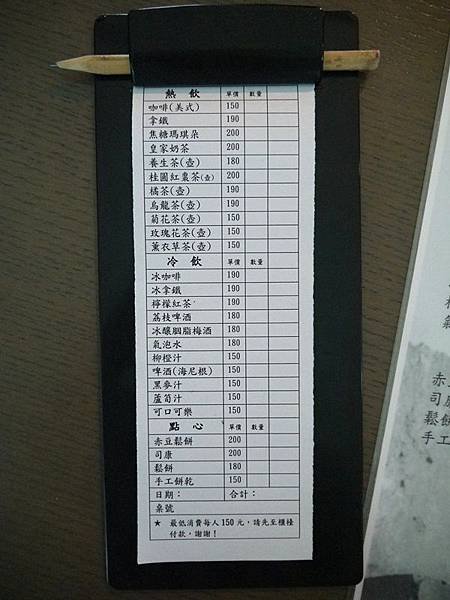 熱 飲 單價 數量
咖啡(美式) 150
拿鐵 190
焦糖瑪琪朵 200
皇家奶茶 200
養生茶(壺) 180
桂圓紅棗茶(壺) 200
橘茶(壺) 190
烏龍茶(壺) 190
菊花茶(壺) 150
玫瑰花茶(壺) 150
薰衣草茶(壺) 150
冷 飲 單價 數量
冰咖啡 190
冰拿鐵 190
檸檬紅茶 190
荔枝啤酒 180
冰釀胭脂梅酒 180
氣泡水 180
柳橙汁 150
啤酒(海尼根) 150
黑麥汁 150
蘆筍汁 150
可口可樂 150
點 心 單價 數量
赤豆鬆餅 200
司康 200
鬆餅 180
手工餅乾 150
日期： 合計：
桌號
★ 最低消費每人150元，請先至櫃檯
付款，謝謝！
氣
赤豆
司康
鬆餅
手工